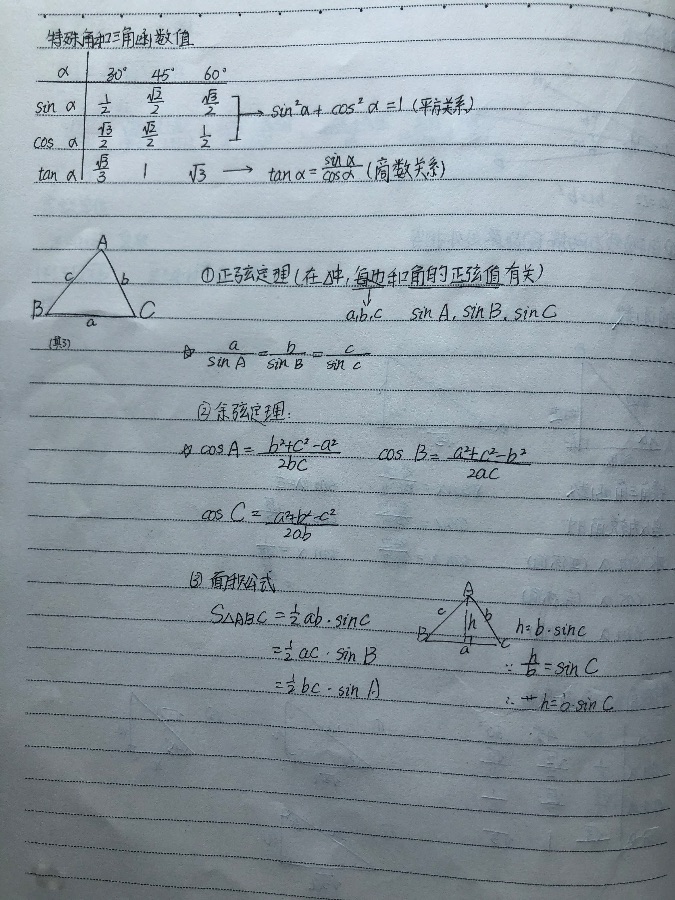 特殊角和三角函数值
α 30° 45° 60°
sin α 1/2 √2/2 √3/2 → sin²α + cos²α = 1 (平方关系)
cos α √3/2 √2/2 1/2
tan α √3/3 1 √3 → tanα = sinα/cosα (商数关系)
A
c b
B a C
①正弦定理(在△中,每边和角的正弦值有关)
a,b,c sin A, sin B, sin C
a/sin A = b/sin B = c/sin C
②余弦定理:
cos A = b²+c²-a²/2bc cos B = a²+c²-b²/2ac
cos C = a²+b²-c²/2ab
③面积公式
S△ABC = 1/2 ab · sin C
= 1/2 ac · sin B
= 1/2 bc · sin A
A
c h b
B a C
h = b · sin C
∵ h/b = sin C
∴ h = b · sin C